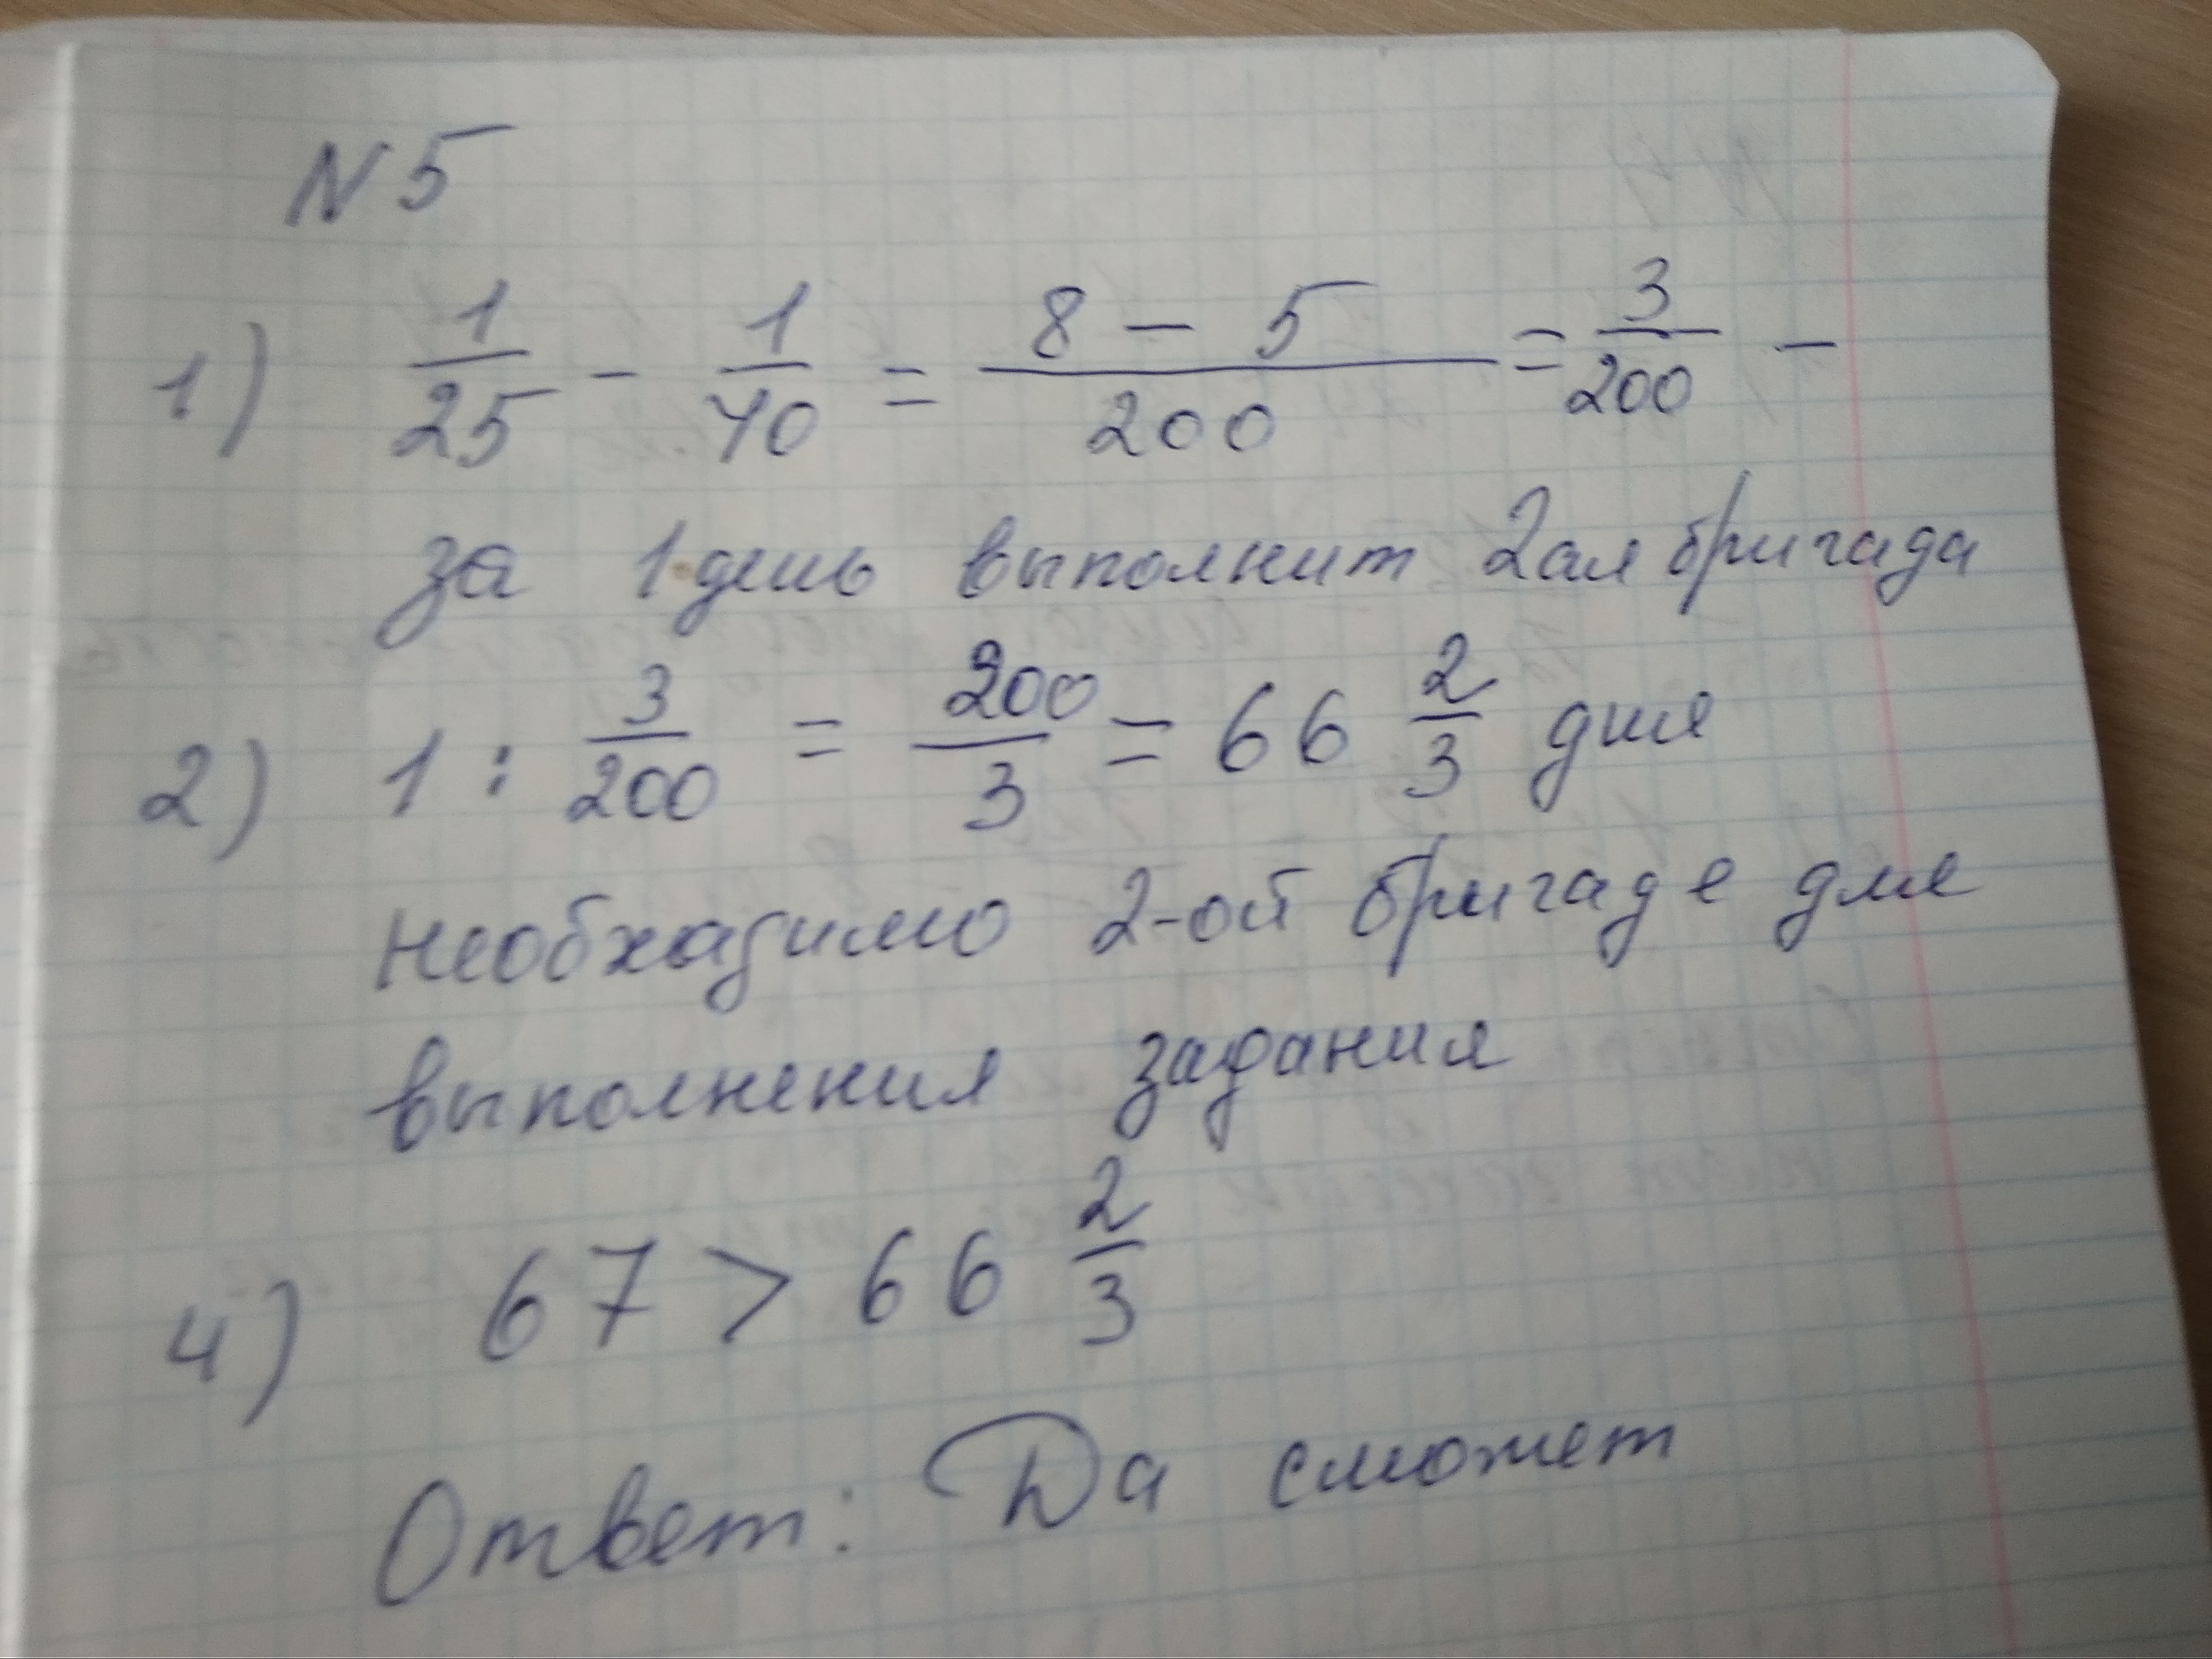 N 5
1) 1/25 - 1/40 = (8 - 5)/200 = 3/200 -
за 1 день выполнит 2ая бригада
2) 1 : 3/200 = 200/3 = 66 2/3 дня
необхадимо 2-ой бригаде для
выполнения задания
4) 67 > 66 2/3
Ответ: Да сможет